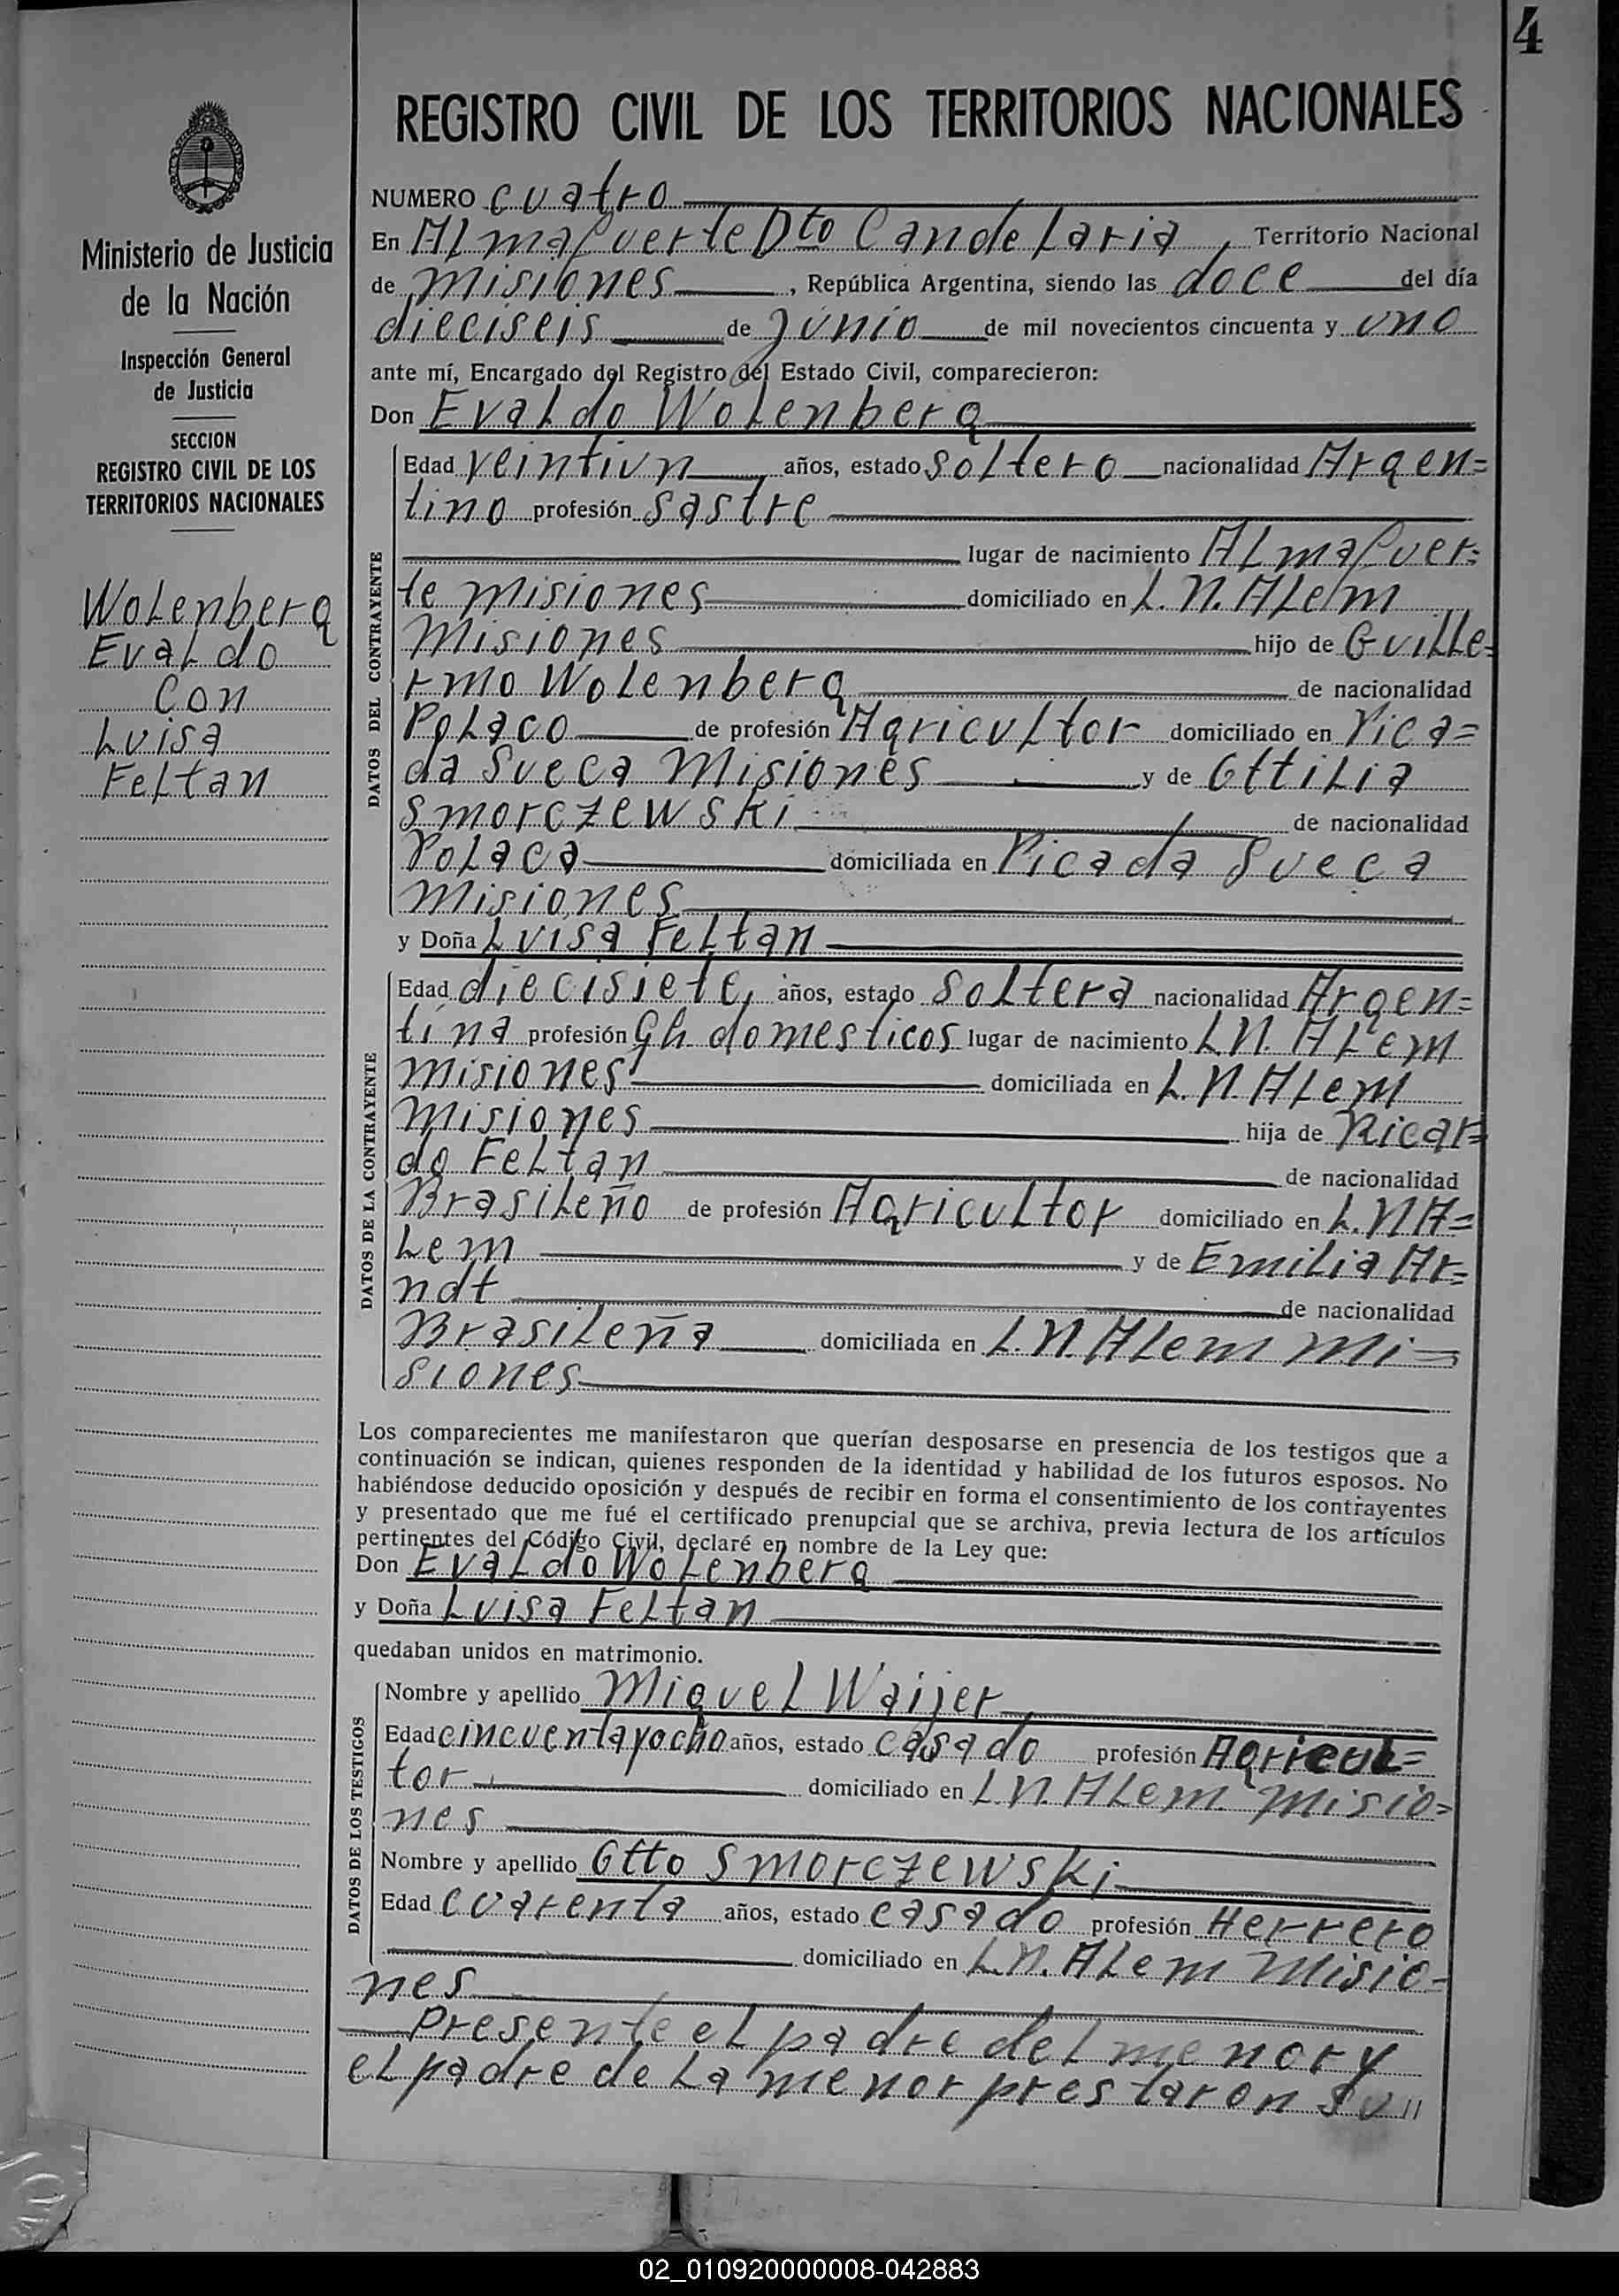 4
REGISTRO CIVIL DE LOS TERRITORIOS NACIONALES
Ministerio de Justicia
de la Nación
Inspección General
de Justicia
SECCION
REGISTRO CIVIL DE LOS
TERRITORIOS NACIONALES
Wolenberg
Evaldo
con
Luisa
Feltan
NUMERO cuatro
En Almafuerte Dto Candelaria, Territorio Nacional
de Misiones, República Argentina, siendo las doce del día
dieciseis de junio de mil novecientos cincuenta y uno
ante mí, Encargado del Registro del Estado Civil, comparecieron:
Don Evaldo Wolenberg
DATOS DEL CONTRAYENTE
Edad veintiun años, estado soltero nacionalidad Argen=
tino profesión sastre
lugar de nacimiento Almafuer=
te Misiones domiciliado en L. N. Alem
Misiones hijo de Guille=
rmo Wolenberg de nacionalidad
Polaco de profesión Agricultor domiciliado en Pica=
da Sueca Misiones y de Ottilia
Smorczewski de nacionalidad
Polaca domiciliada en Picada Sueca
Misiones
y Doña Luisa Feltan
DATOS DE LA CONTRAYENTE
Edad diecisiete, años, estado soltera nacionalidad Argen=
tina profesión Qh. domesticos lugar de nacimiento L.N. Alem
Misiones domiciliada en L. N. Alem
Misiones hija de Ricar=
do Feltan de nacionalidad
Brasileño de profesión Agricultor domiciliado en L. N A=
lem y de Emilia Ar=
ndt de nacionalidad
Brasileña domiciliada en L. N. Alem Mi=
siones
Los comparecientes me manifestaron que querían desposarse en presencia de los testigos que a
continuación se indican, quienes responden de la identidad y habilidad de los futuros esposos. No
habiéndose deducido oposición y después de recibir en forma el consentimiento de los contrayentes
y presentado que me fué el certificado prenupcial que se archiva, previa lectura de los artículos
pertinentes del Código Civil, declaré en nombre de la Ley que:
Don Evaldo Wolenberg
y Doña Luisa Feltan
quedaban unidos en matrimonio.
DATOS DE LOS TESTIGOS
Nombre y apellido Miguel Waijer
Edad cincuentayocho años, estado casado profesión Agricul=
tor domiciliado en L. N. Alem. Misio=
nes
Nombre y apellido Otto Smorczewski
Edad cuarenta años, estado casado profesión Herrero
domiciliado en L. N. Alem Misio=
nes
Presente el padre del menor y
el padre de la menor prestaron su //
02_010920000008-042883